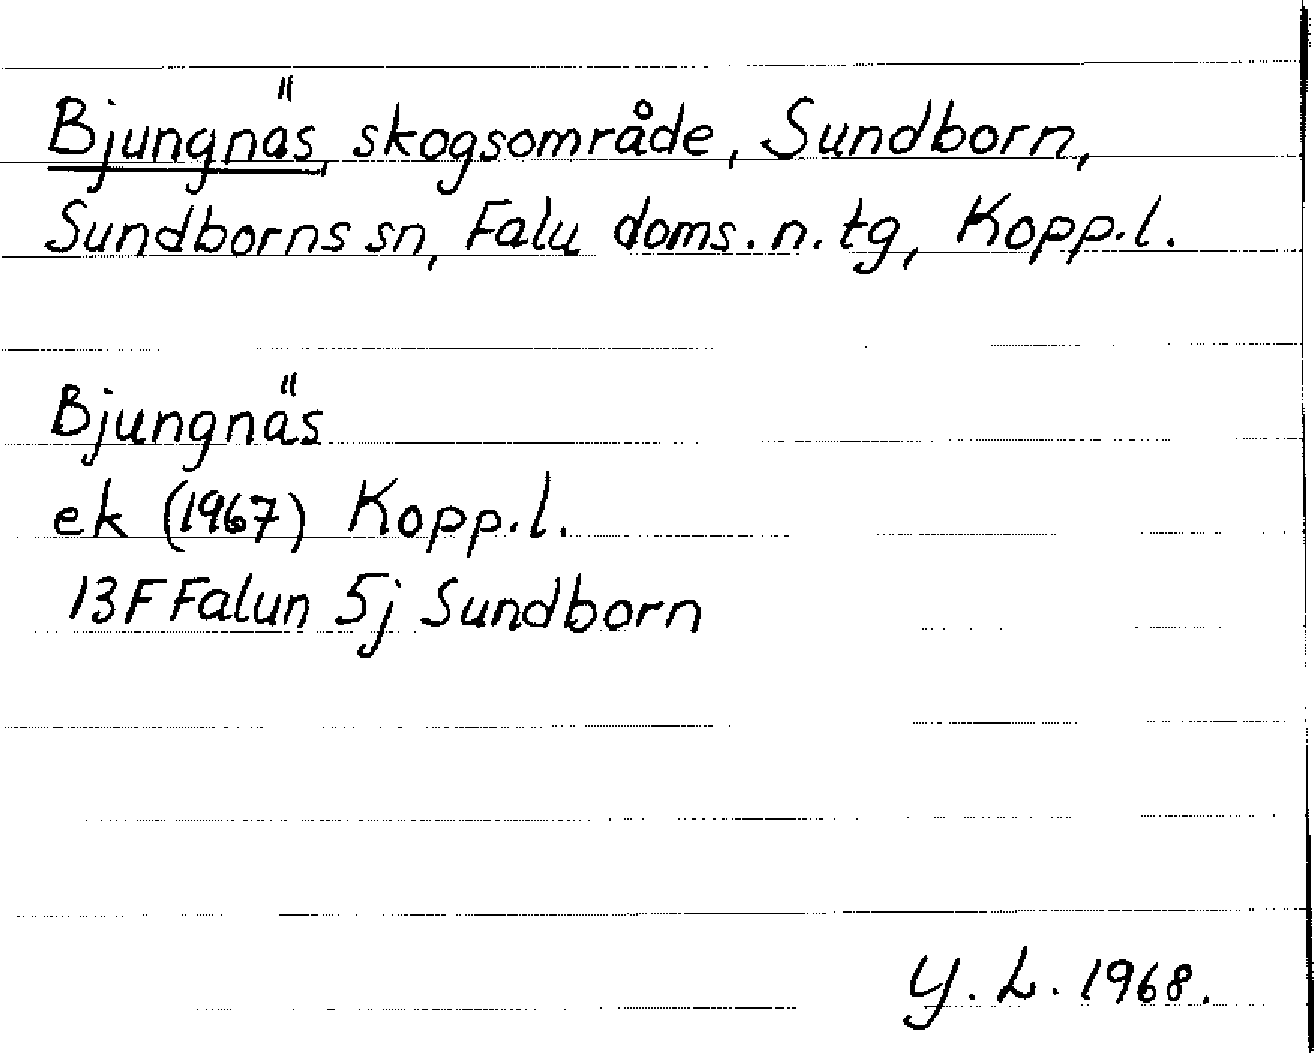 Bjungnäs, skogsområde, Sundborn,
Sundborns sn, Falu doms. n. tg, Kopp.l.
Bjungnäs
ek (1967) Kopp.l.
13F Falun 5j Sundborn
Y. L. 1968.